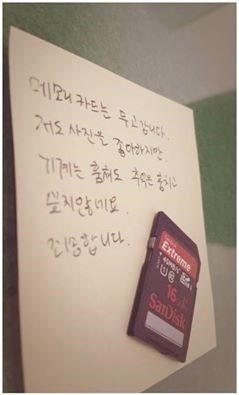 메모리 카드는 두고 갑니다.
저도 사진을 좋아하지만.
기계는 훔쳐도 추억은 훔치고
싶지않네요.
죄송합니다.
SanDisk
Extreme
45MB/s
16 GB
SanDisk